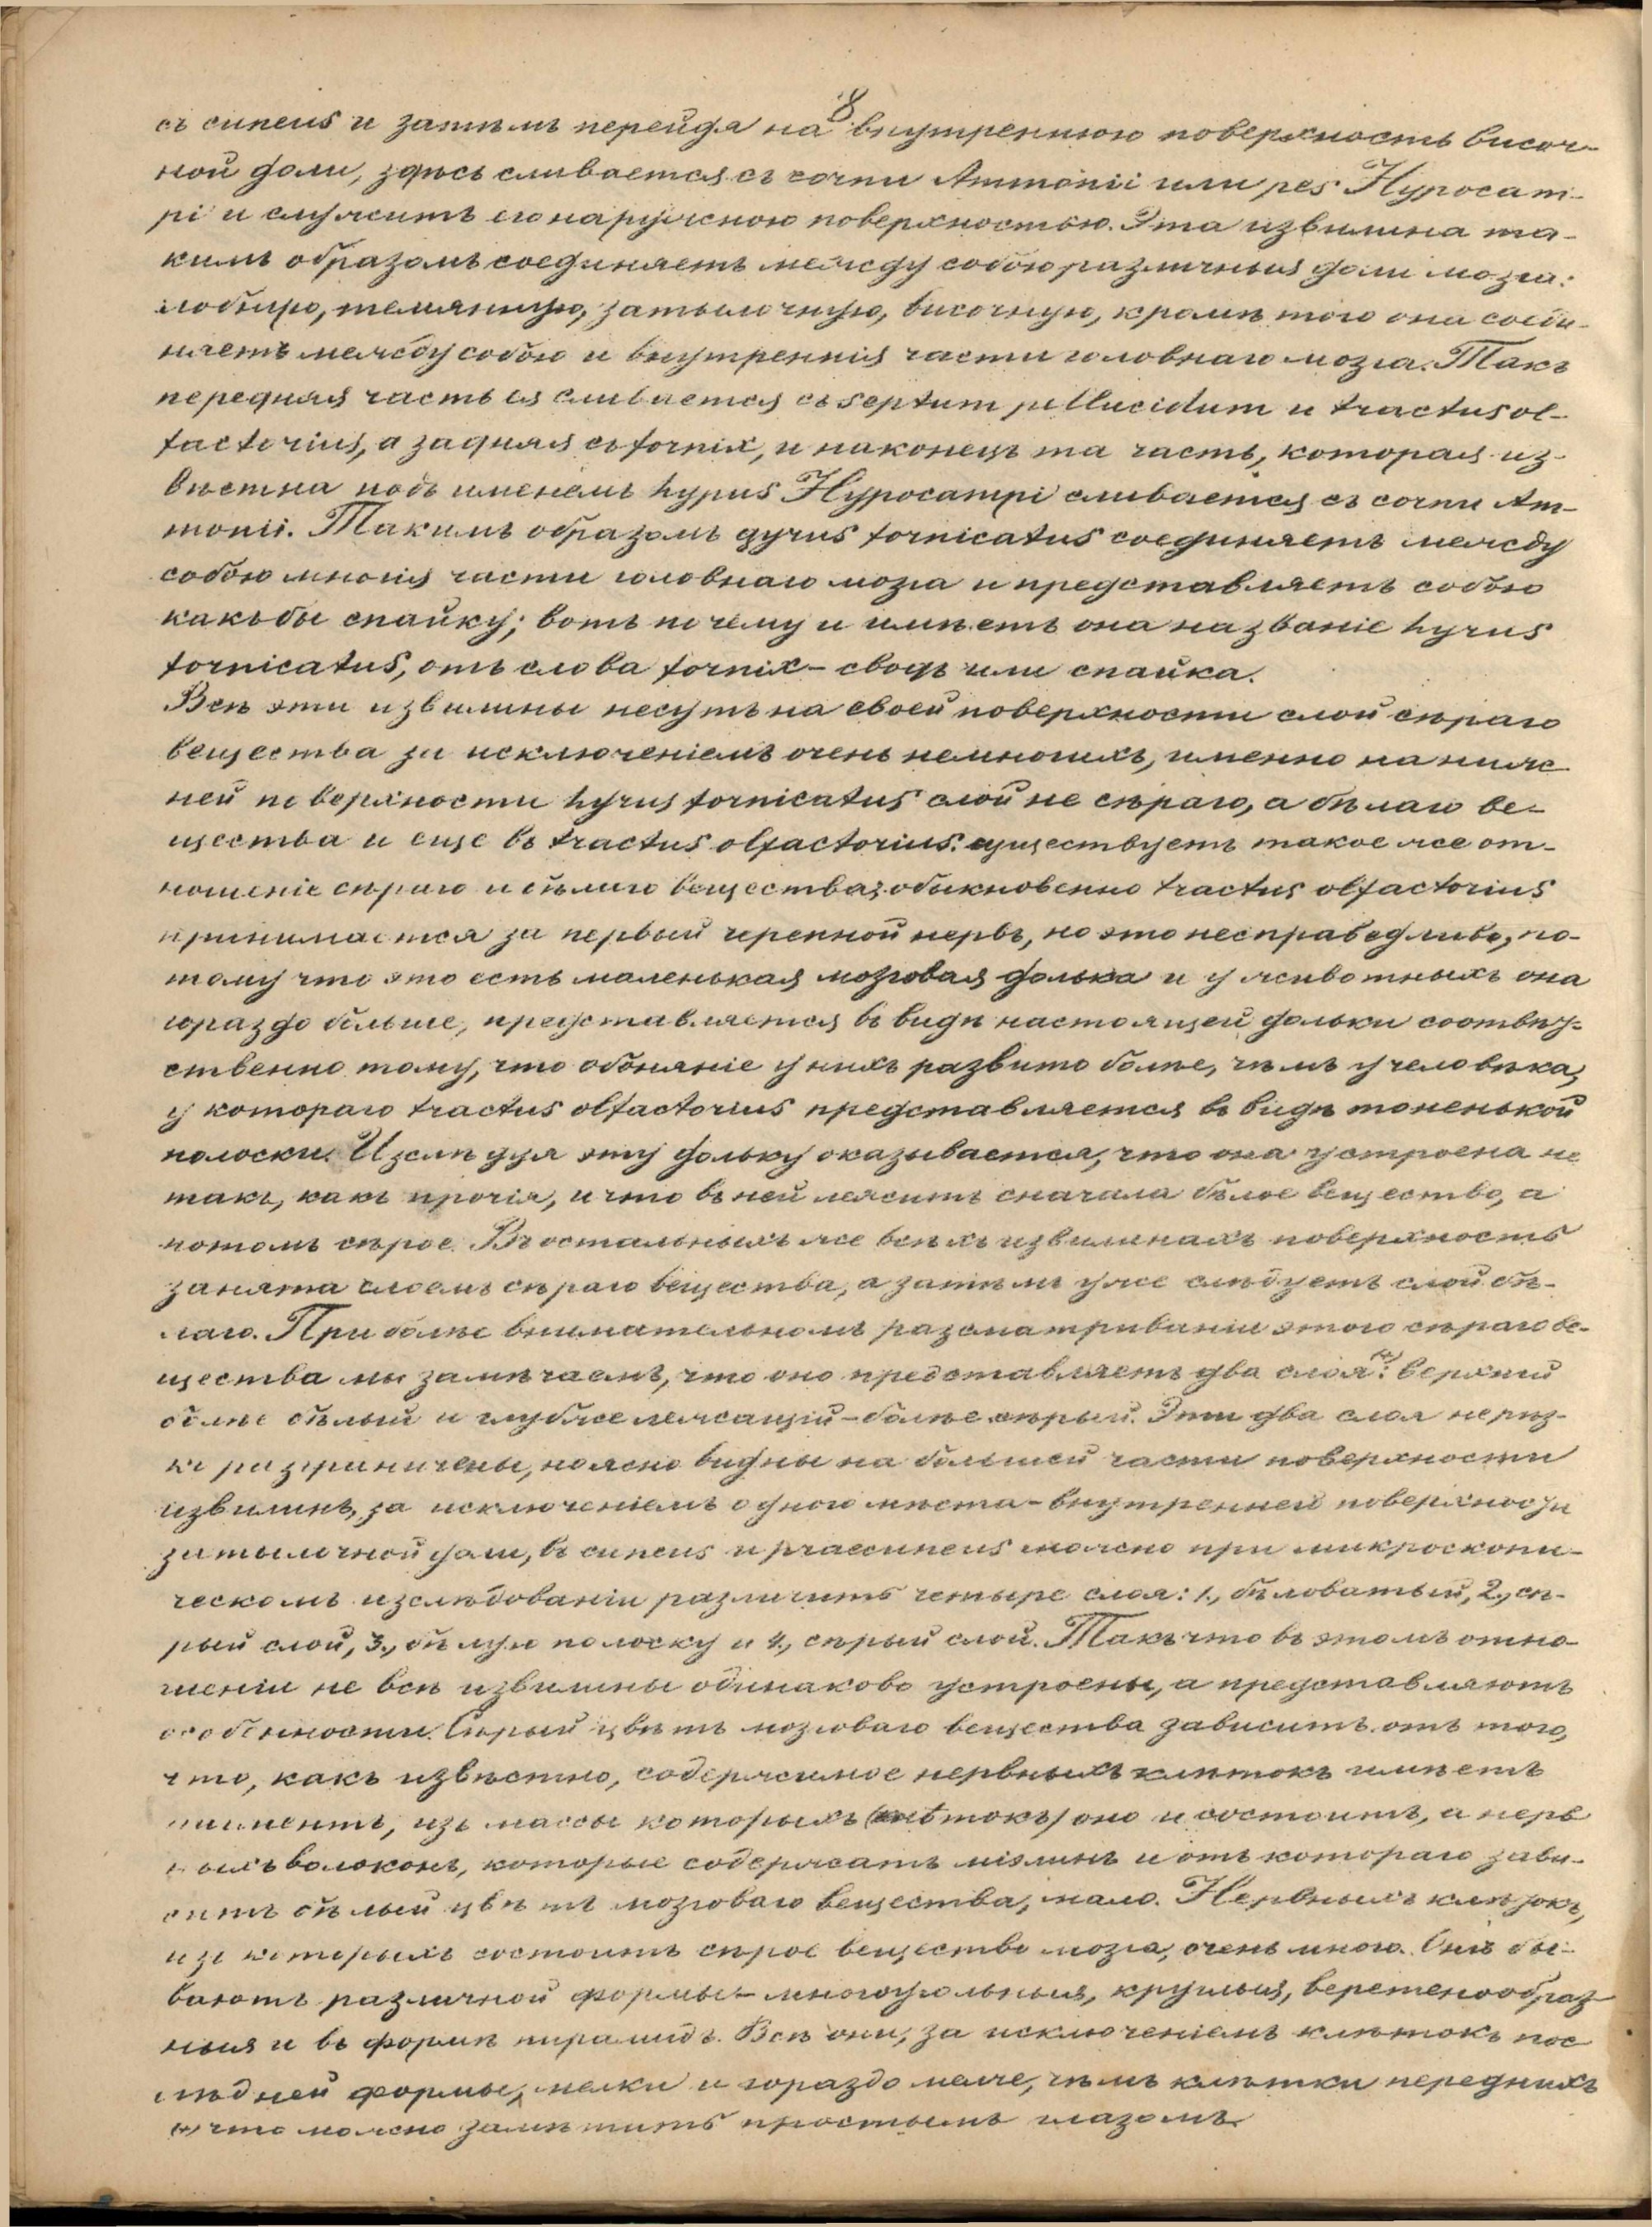 8
съ cuneus и затѣмъ перейдя на внутреннюю поверхность височ-
ной доли, здѣсь сливается съ cornu Ammonii или pes Hypocam-
pi и служитъ его наружною поверхностью. Эта извилина та-
кимъ образомъ соединяетъ между собою различныя доли мозга:
лобную, темянную, затылочную, височную, кромѣ того она соеди-
няетъ между собою и внутреннія части головнаго мозга. Такъ
передняя часть ея сливается съ septum pellucidum и tractus ol-
factorius, а задняя съ fornix, и наконецъ та часть, которая из-
вѣстна подъ именемъ hyrus Hypocampi сливается съ cornu Am-
monii. Такимъ образомъ gyrus fornicatus соединяетъ между
собою многія части головнаго мозга и представляетъ собою
какъ бы спайку; вотъ почему и имѣетъ она названіе hyrus
fornicatus, отъ слова fornix – сводъ или спайка.
Всѣ эти извилины несутъ на своей поверхности слой сѣраго
вещества за исключеніемъ очень немногихъ, именно на ниж-
ней поверхности hyrus fornicatus слой не сѣраго, а бѣлаго ве-
щества и еще въ tractus olfactorius существуетъ такое же от-
ношеніе сѣраго и бѣлаго вещества; обыкновенно tractus olfactorius
принимается за первый черепной нервъ, но это несправедливо, по-
тому что это есть маленькая мозговая долька и у животныхъ она
гораздо больше, представляется въ видѣ настоящей дольки соотвѣт-
ственно тому, что обоняніе у нихъ развито болѣе, чѣмъ у человѣка,
у котораго tractus olfactorius представляется въ видѣ тоненькой
полоски. Изслѣдуя эту дольку оказывается, что она устроена не
такъ, какъ прочія, и что въ ней лежитъ сначала бѣлое вещество, а
потомъ сѣрое. Въ остальныхъ же всѣхъ извилинахъ поверхность
занята слоемъ сѣраго вещества, а затѣмъ уже слѣдуетъ слой бѣ-
лаго. При болѣе внимательномъ разсматриваніи этого сѣраго ве-
щества мы замѣчаемъ, что оно представляетъ два слоя (*): верхній
болѣе бѣлый и глубже лежащій – болѣе сѣрый. Эти два слоя не рѣз-
ко разграничены, но ясно видны на большей части поверхности
извилинъ, за исключеніемъ одного мѣста – внутренней поверхности
затылочной доли, въ cuneus и praecuneus можно при микроскопи-
ческомъ изслѣдованіи различить четыре слоя: 1., бѣловатый, 2., сѣ-
рый слой, 3., бѣлую полоску и 4., сѣрый слой. Такъ что въ этомъ отно-
шеніи не всѣ извилины одинаково устроены, а представляютъ
особенности. Сѣрый цвѣтъ мозговаго вещества зависитъ отъ того,
что, какъ извѣстно, содержимое нервныхъ клѣтокъ имѣетъ
пигментъ, изъ массы которыхъ (клѣтокъ) оно и состоитъ, а нерв
ныхъ волоконъ, которые содержатъ міэлинъ и отъ котораго зави-
ситъ бѣлый цвѣтъ мозговаго вещества, мало. Нервныхъ клѣтокъ,
изъ которыхъ состоитъ сѣрое вещество мозга, очень много. Онѣ бы-
ваютъ различной формы – многоугольныя, круглыя, веретенообраз
ныя и въ формѣ пирамидъ. Всѣ они, за исключеніемъ клѣтокъ пос
лѣдней формы, мелки и гораздо мельче, чѣмъ клѣтки переднихъ
(*) что можно замѣтить простымъ глазомъ.